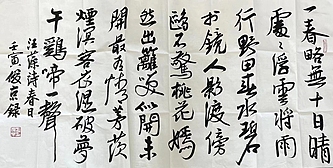 一春略無十日晴
處處浮雲將雨
行野田春水碧
於鏡人影渡傍
鷗不驚桃花嫣
然出籬笑似開未
開最有情茅茨
煙溟客衣湿破夢
午鷄啼一聲
汪藻詩春日
壬寅俊京録